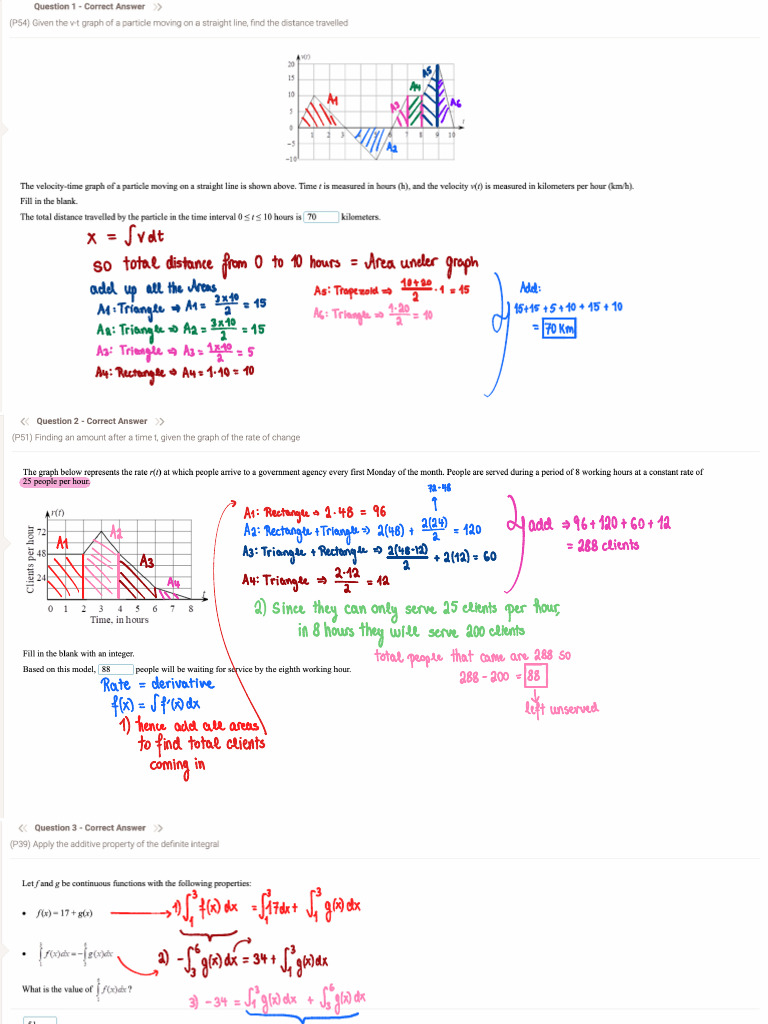 Question 1 - Correct Answer
(P54) Given the v-t graph of a particle moving on a straight line, find the distance travelled
v(t)
20
15
10
5
0
-5
-10
1 2 3 6 7 8 9 10 t
A1
A2
A3
A4
A5
A6
The velocity-time graph of a particle moving on a straight line is shown above. Time t is measured in hours (h), and the velocity v(t) is measured in kilometers per hour (km/h).
Fill in the blank.
The total distance travelled by the particle in the time interval 0 ≤ t ≤ 10 hours is 70 kilometers.
x = ∫vdt
so total distance from 0 to 10 hours = Area under graph
add up all the Areas
A1: Triangle ⇒ A1 = 3×10/2 = 15
A2: Triangle ⇒ A2 = 3×10/2 = 15
A3: Triangle ⇒ A3 = 1×10/2 = 5
A4: Rectangle ⇒ A4 = 1·10 = 10
A5: Trapezoid ⇒ 10+20/2 · 1 = 15
A6: Triangle ⇒ 1·20/2 = 10
Add:
15+15+5+10+15+10
= 70 Km
Question 2 - Correct Answer
(P51) Finding an amount after a time t, given the graph of the rate of change
The graph below represents the rate r(t) at which people arrive to a government agency every first Monday of the month. People are served during a period of 8 working hours at a constant rate of
25 people per hour.
r(t)
Clients per hour
72
48
24
0 1 2 3 4 5 6 7 8
t
Time, in hours
A1
A2
A3
A4
72-48
A1: Rectangle ⇒ 2·48 = 96
A2: Rectangle + Triangle ⇒ 2(48) + 2(24)/2 = 120
A3: Triangle + Rectangle ⇒ 2(48-12)/2 + 2(12) = 60
A4: Triangle ⇒ 2·12/2 = 12
add ⇒ 96+120+60+12
= 288 clients
2) Since they can only serve 25 clients per hour,
in 8 hours they will serve 200 clients
total people that came are 288 so
288 - 200 = 88
left unserved
Fill in the blank with an integer.
Based on this model, 88 people will be waiting for service by the eighth working hour.
Rate = derivative
f(x) = ∫f'(x)dx
1) hence add all areas
to find total clients
coming in
Question 3 - Correct Answer
(P39) Apply the additive property of the definite integral
Let f and g be continuous functions with the following properties:
• f(x) = 17 + g(x)
1) ∫₁³ f(x) dx = ∫₁³ 17dx + ∫₁³ g(x) dx
• ∫ f(x)dx = -∫ g(x)dx
2) -∫₃⁶ g(x) dx = 34 + ∫₁³ g(x)dx
What is the value of ∫ f(x)dx ?
3) -34 = ∫₁³ g(x) dx + ∫₃⁶ g(x) dx